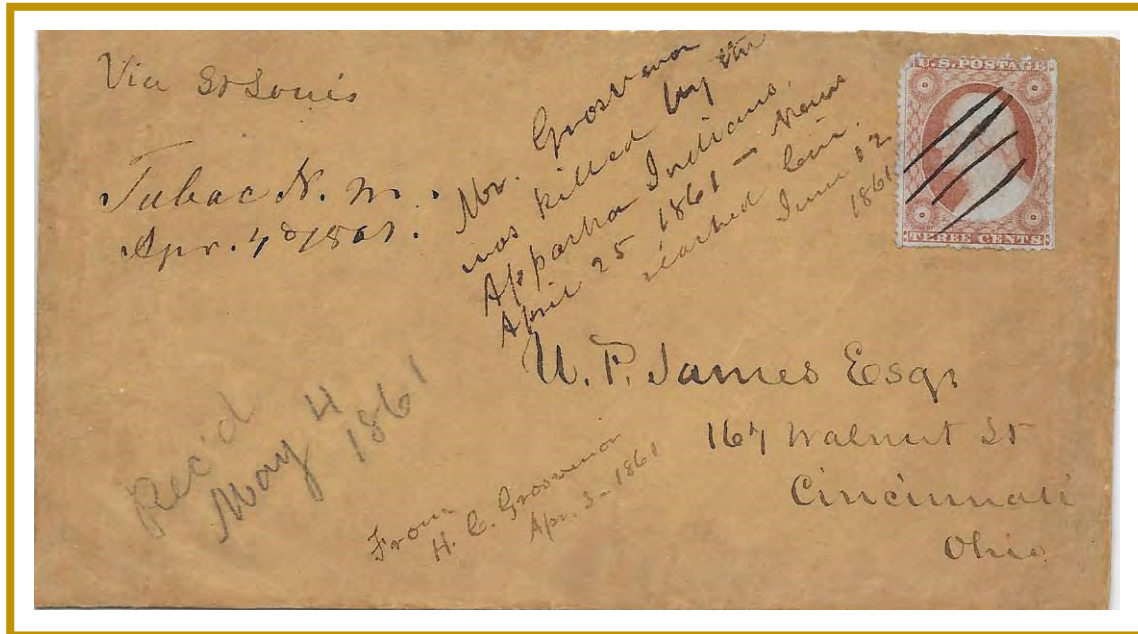 Via St Louis
Tubac N. M.
Apr. 4th 1861.
Mr. Grosvenor
was killed by the
Appacha Indians,
April 25 1861 - News
reached Cin.
June 12
1861
U.S. POSTAGE
THREE CENTS
U. P. James Esqr
167 Walnut St
Cincinnati
Ohio
Rec'd
May 4
1861
From
H. C. Grosvenor
Apr. 3 - 1861